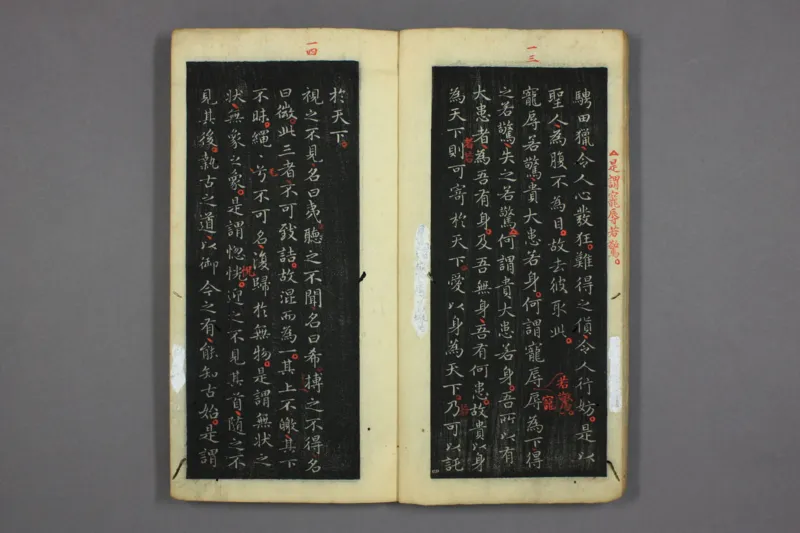 一三
騁田獵令人心發狂難得之貨令人行妨是以
聖人為腹不為目故去彼取此
寵辱若驚貴大患若身何謂寵辱辱為下得
之若驚失之若驚何謂貴大患若身吾所以有
大患者為吾有身及吾無身吾有何患故貴以身
為天下則可寄於天下愛以身為天下乃可以託
是謂寵辱若驚
若驚
寵
者若
一四
於天下
視之不見名曰夷聽之不聞名曰希搏之不得名
曰微此三者不可致詰故混而為一其上不皦其下
不昧繩〻兮不可名復歸於無物是謂無狀之
狀無象之象是謂惚恍迎之不見其首隨之不
見其後執古之道以御今之有能知古始是謂